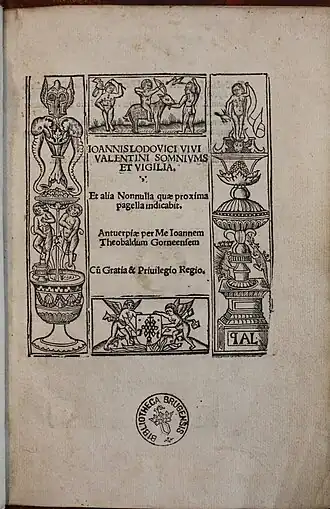 IOANNIS LODOVICI VIVI
VALENTINI SOMNIVMS
ET VIGILIA.
Et alia Nonnulla quæ proxima
pagella indicabit.
Antuerpiæ per Me Ioannem
Theobaldum Gorneensem
Cũ Gratia & Priuilegio Regio.
PAL
BIBLIOTHECA BRUGENSIS